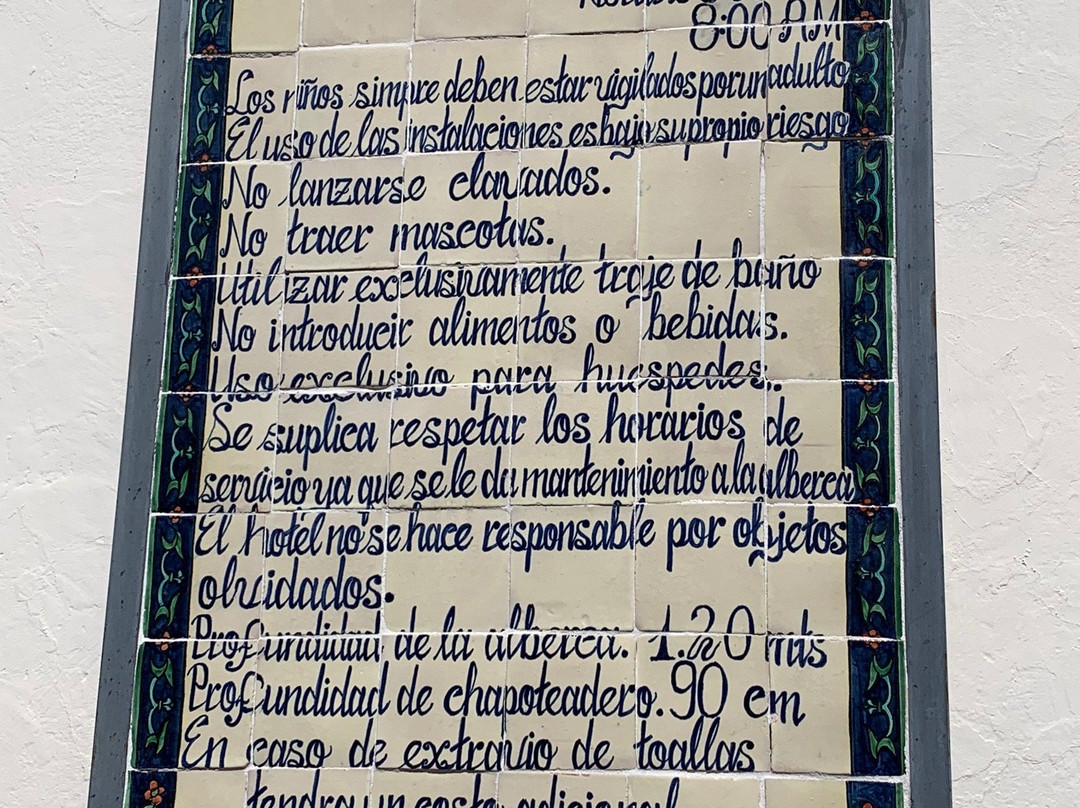 8:00 AM
Los niños simpre deben estar vigilados por un adulto
El uso de las instalaciones es bajo su propio riesgo
No lanzarse clavados.
No traer mascotas.
Utilizar exclusivamente traje de baño
No introducir alimentos o bebidas.
Uso exclusivo para huespedes.
Se suplica respetar los horarios de
servicio ya que se le da mantenimiento a la alberca
El hotel no se hace responsable por objetos
olvidados.
Profundidad de la alberca. 1.20 mts
Profundidad de chapoteadero. 90 cm
En caso de extravio de toallas
tendra un costo adicional